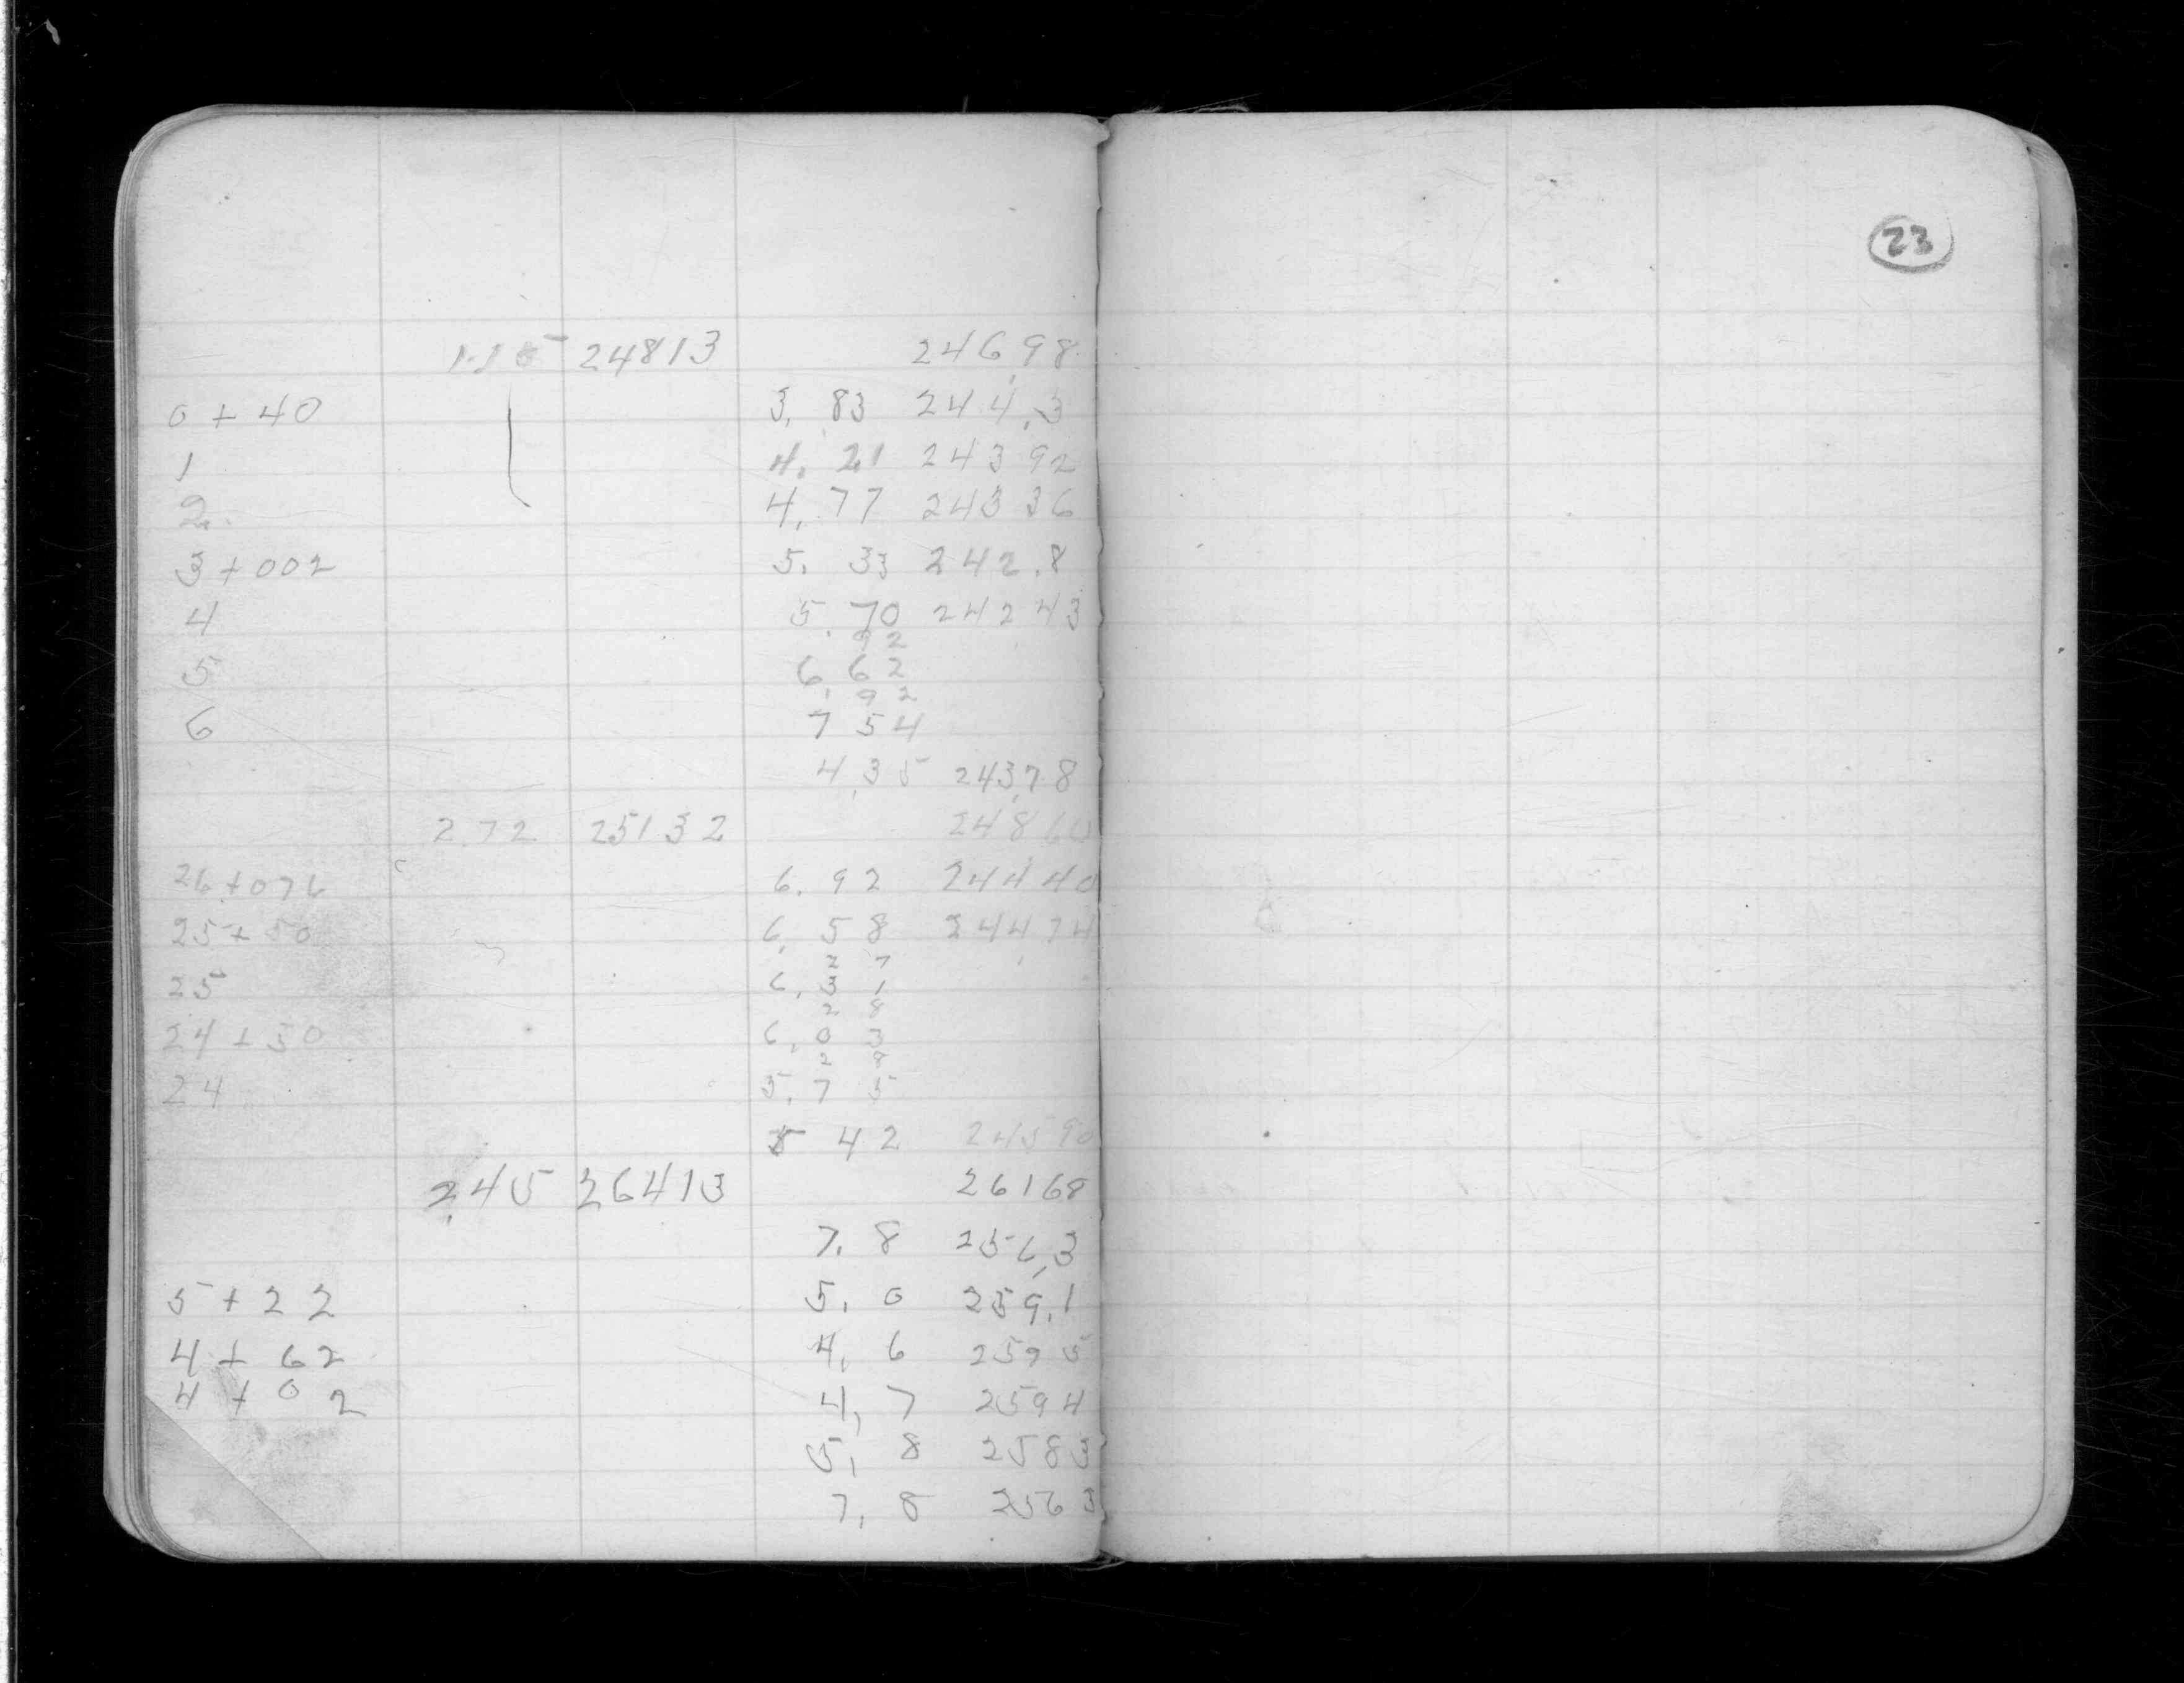 1.15 24813 246,98
0 + 40 3, 83 244,3
1 4. 21 243 92
2. 4, 77 243 36
3 + 002 5. 33 242.8
4 5. 70 242 43
92
5 6, 62
92
6 7 54
4,35 243,78
2.72 25132 24860
26 + 076 6. 92 244 40
25 + 50 6, 58 244 74
27
25 6, 31
28
24 + 50 6, 03
28
24 5, 75
5 42 245 90
2,45 26413 26168
7. 8 256,3
5 + 22 5. 0 259.1
4 + 62 4, 6 259 5
4 + 02 4, 7 259 4
5, 8 258 3
7, 8 256 3
23